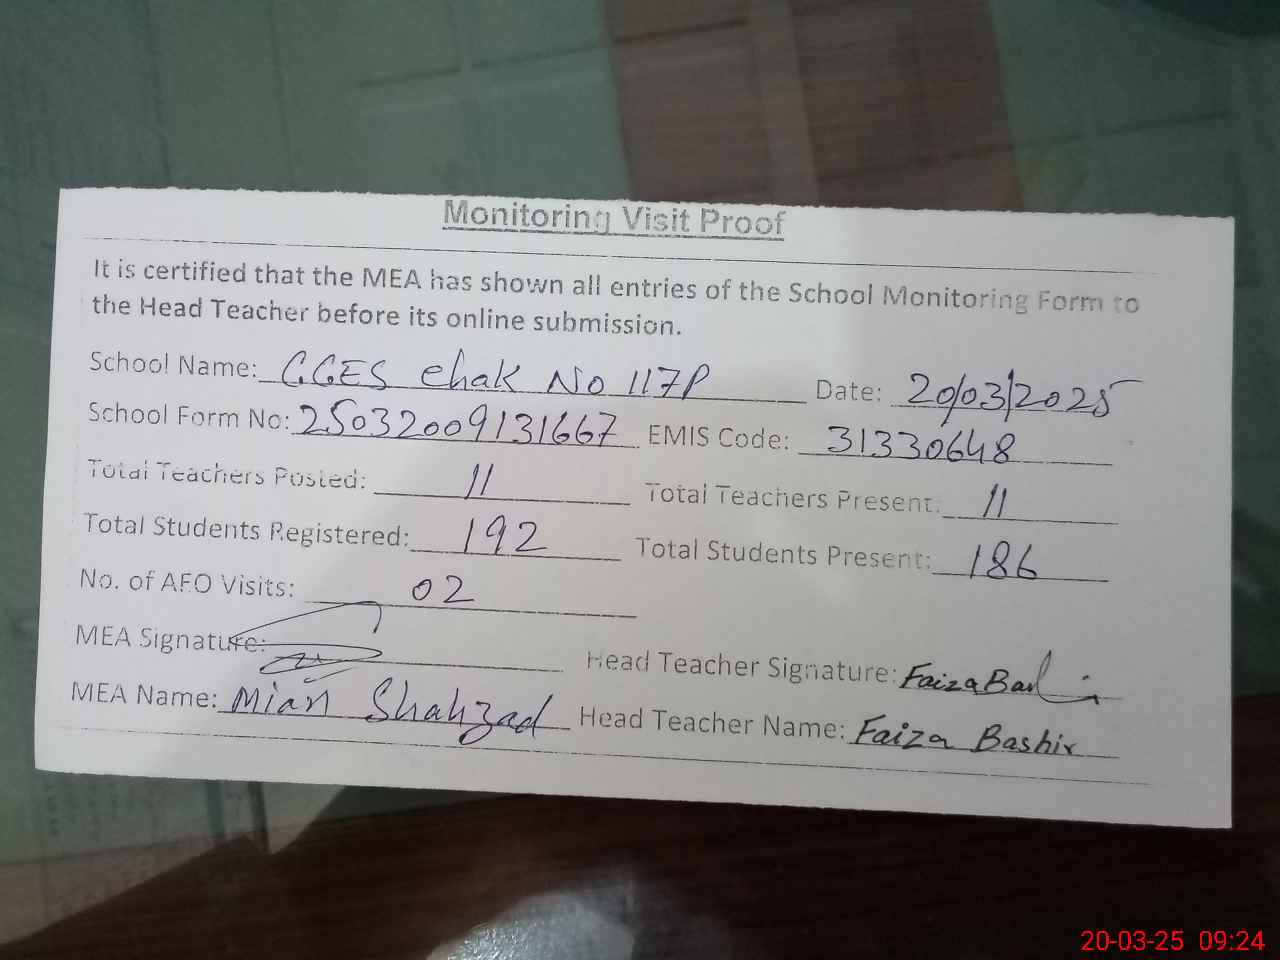 Monitoring Visit Proof
It is certified that the MEA has shown all entries of the School Monitoring Form to
the Head Teacher before its online submission.
School Name: GGES Chak No 117P Date: 20/03/2025
School Form No: 25032009131667 EMIS Code: 31330648
Total Teachers Posted: 11 Total Teachers Present: 11
Total Students Registered: 192 Total Students Present: 186
No. of AEO Visits: 02
MEA Signature: Head Teacher Signature: Faiza
MEA Name: Mian Shahzad Head Teacher Name: Faiza Bashir
20-03-25 09:24